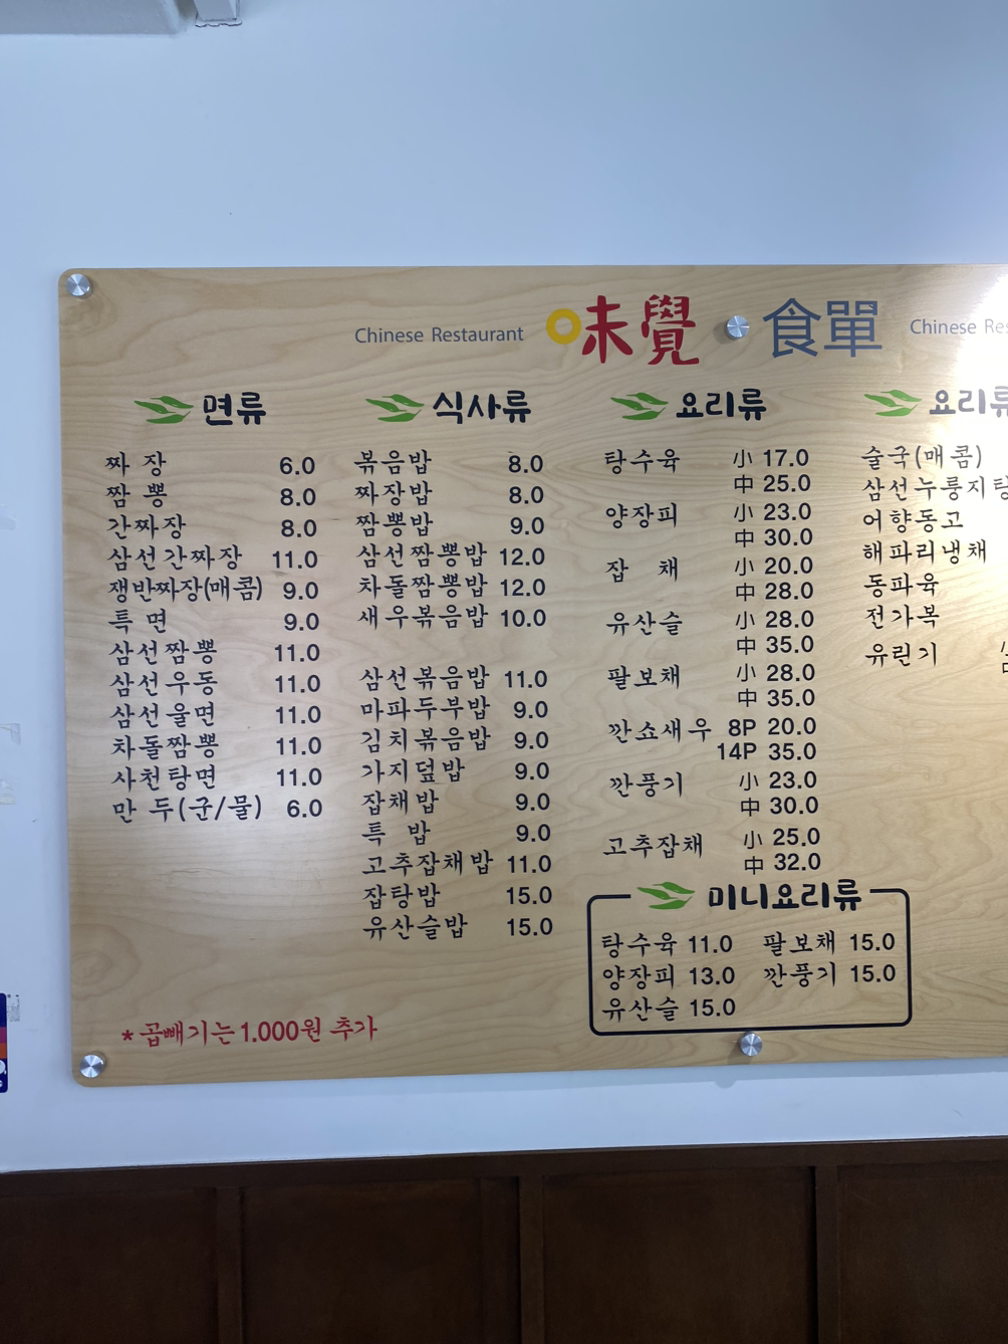 Chinese Restaurant 味覺 · 食單 Chinese
면류
짜 장 6.0
짬 뽕 8.0
간짜장 8.0
삼선간짜장 11.0
쟁반짜장(매콤) 9.0
특 면 9.0
삼선짬뽕 11.0
삼선우동 11.0
삼선울면 11.0
차돌짬뽕 11.0
사천탕면 11.0
만 두(군/물) 6.0
* 곱빼기는 1.000원 추가
식사류
볶음밥 8.0
짜장밥 8.0
짬뽕밥 9.0
삼선짬뽕밥 12.0
차돌짬뽕밥 12.0
새우볶음밥 10.0
삼선볶음밥 11.0
마파두부밥 9.0
김치볶음밥 9.0
가지덮밥 9.0
잡채밥 9.0
특 밥 9.0
고추잡채밥 11.0
잡탕밥 15.0
유산슬밥 15.0
요리류
탕수육 小 17.0
中 25.0
양장피 小 23.0
中 30.0
잡 채 小 20.0
中 28.0
유산슬 小 28.0
中 35.0
팔보채 小 28.0
中 35.0
깐쇼새우 8P 20.0
14P 35.0
깐풍기 小 23.0
中 30.0
고추잡채 小 25.0
中 32.0
미니요리류
탕수육 11.0 팔보채 15.0
양장피 13.0 깐풍기 15.0
유산슬 15.0
요리류
술국(매콤)
삼선누룽지탕
어향동고
해파리냉채
동파육
전가복
유린기